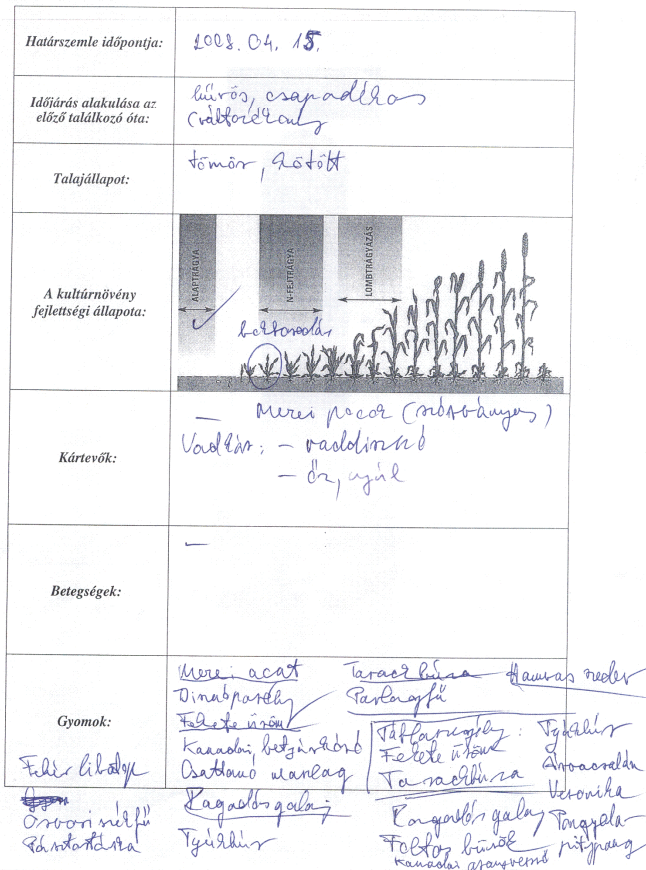 Határszemle időpontja:
2008. 04. 15.
Időjárás alakulása az
előző találkozó óta:
hűvös, csapadékos
(változékony
Talajállapot:
tömör, kötött
A kultúrnövény
fejlettségi állapota:
ALAPTRÁGYA
N-FEJTRÁGYA
LOMBTRÁGYÁZÁS
bokrosodás
Kártevők:
— Mezei pocok (szórványos)
Vadkár: – vaddisznó
– őz, nyúl
Betegségek:
—
Gyomok:
Mezei acat
Disznóparéj
Fekete üröm
Kanadai betyárkóró
Csattanó maszlag
Ragadós galaj
Tyúkhúr
Tarackbúza
Parlagfű
Hamvas szeder
Táblaszegély:
Fekete üröm
Tarackbúza
Ragadós galaj
Foltos bürök
Kanadai aranyvessző
Tyúkhúr
Árvacsalán
Veronika
Pongyola-
pitypang
Fehér libatop
Orvosi székfű
Pásztortáska